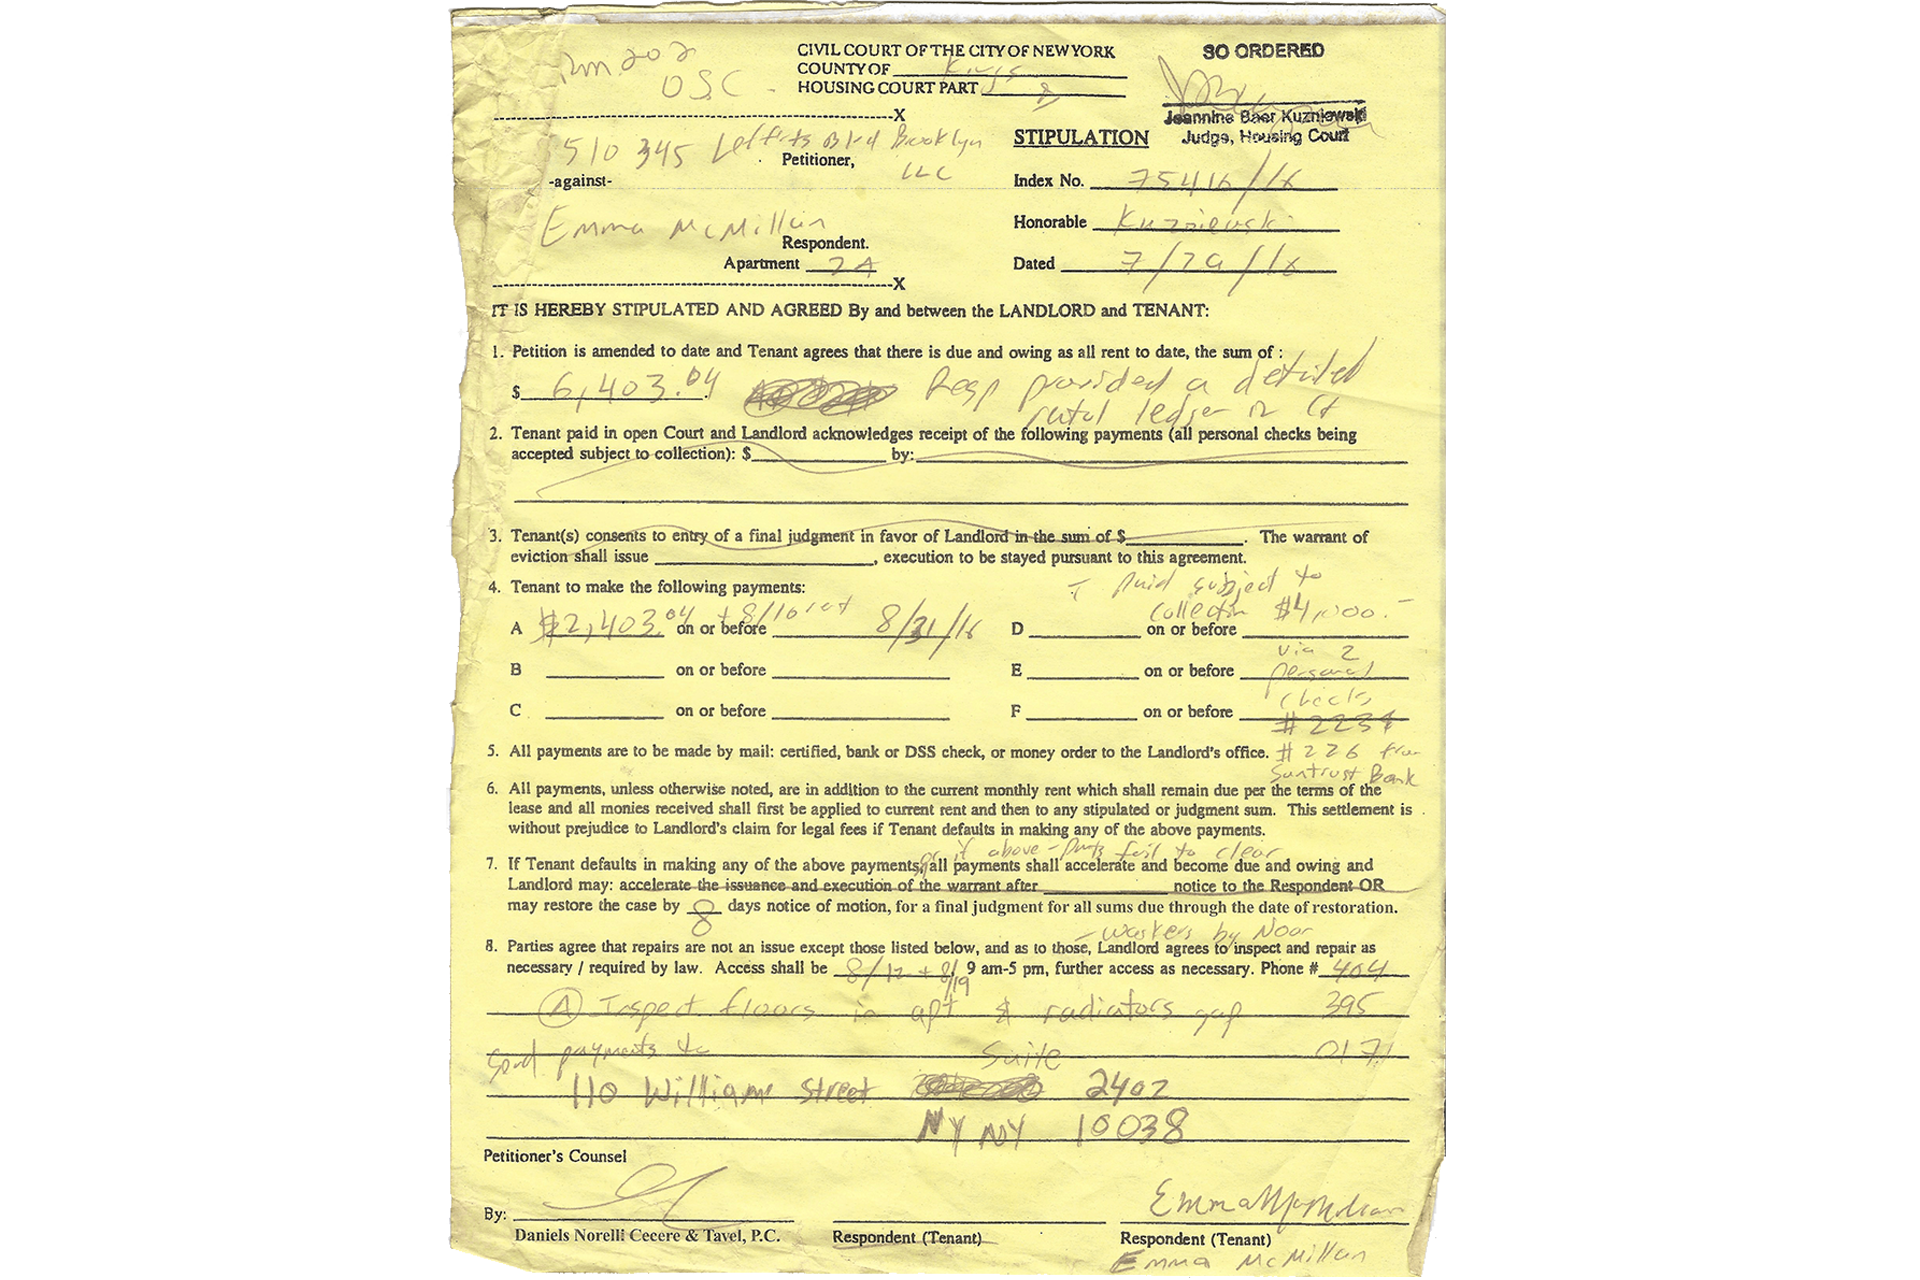 Rm 202
OSC
CIVIL COURT OF THE CITY OF NEW YORK
COUNTY OF Kings
HOUSING COURT PART
SO ORDERED
Jeannine Baer Kuzniewski
Judge, Housing Court
X
510 345 Lefferts Blvd Brooklyn
LLC
Petitioner,
-against-
Emma McMillan
Respondent.
Apartment 2A
X
STIPULATION
Index No. 75416/16
Honorable Kuzniewski
Dated 7/29/16
IT IS HEREBY STIPULATED AND AGREED By and between the LANDLORD and TENANT:
1. Petition is amended to date and Tenant agrees that there is due and owing as all rent to date, the sum of :
$ 6,403.04 Resp provided a detailed
rental ledger in Ct
2. Tenant paid in open Court and Landlord acknowledges receipt of the following payments (all personal checks being
accepted subject to collection): $ by:
3. Tenant(s) consents to entry of a final judgment in favor of Landlord in the sum of $ . The warrant of
eviction shall issue , execution to be stayed pursuant to this agreement.
4. Tenant to make the following payments:
A $2,403.04 + 8/16 rent on or before 8/31/16
B on or before
C on or before
D on or before
E on or before
F on or before
paid subject to
collection $4,000.-
via 2
personal
checks
#2231
#226 from
Suntrust Bank
5. All payments are to be made by mail: certified, bank or DSS check, or money order to the Landlord's office.
6. All payments, unless otherwise noted, are in addition to the current monthly rent which shall remain due per the terms of the
lease and all monies received shall first be applied to current rent and then to any stipulated or judgment sum. This settlement is
without prejudice to Landlord's claim for legal fees if Tenant defaults in making any of the above payments.
or if above-pmts fail to clear
7. If Tenant defaults in making any of the above payments, all payments shall accelerate and become due and owing and
Landlord may: accelerate the issuance and execution of the warrant after notice to the Respondent OR
may restore the case by 8 days notice of motion, for a final judgment for all sums due through the date of restoration.
- workers by Noon
8. Parties agree that repairs are not an issue except those listed below, and as to those, Landlord agrees to inspect and repair as
necessary / required by law. Access shall be 8/12 + 8/19 9 am-5 pm, further access as necessary. Phone # 404
395
0171
A Inspect floors in apt & radiators gap
Send payments to
110 William Street Suite 2402
NY NY 10038
Petitioner's Counsel
By:
Daniels Norelli Cecere & Tavel, P.C.
Respondent (Tenant)
Emma McMillan
Respondent (Tenant)
Emma McMillan